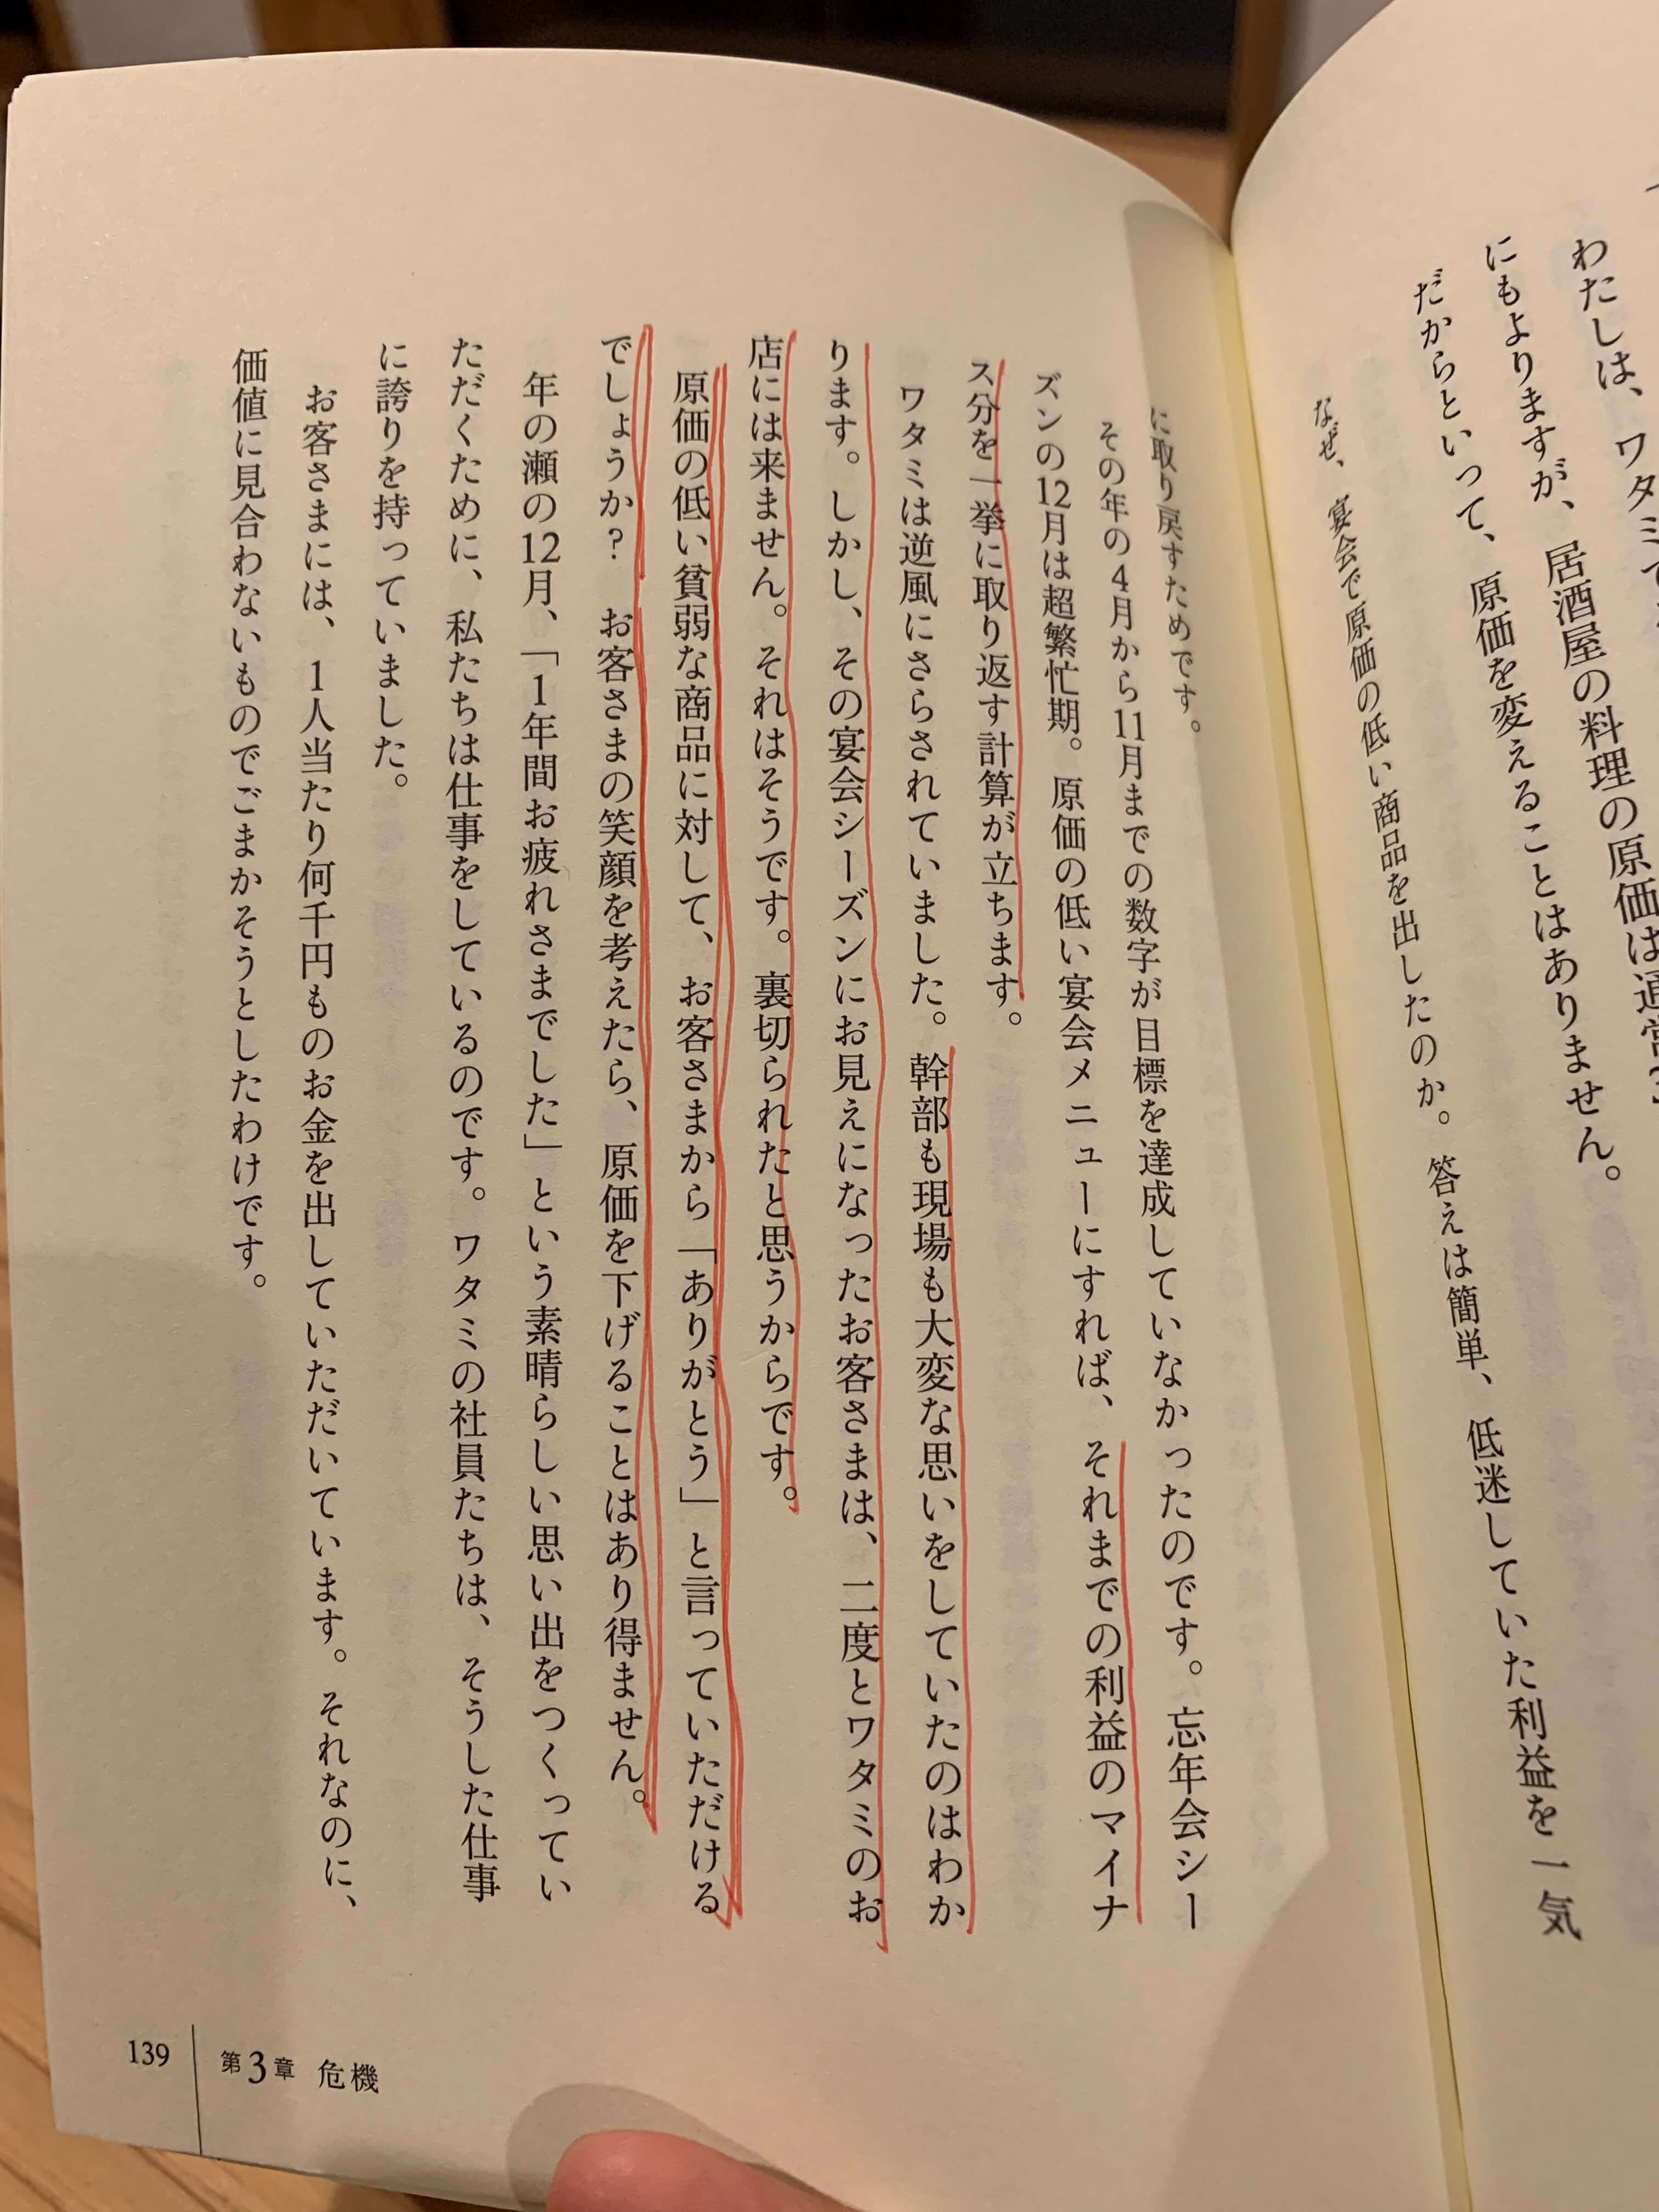 わたしは、ワタミで
にもよりますが、居酒屋の料理の原価は通常3
だからといって、原価を変えることはありません。
なぜ、宴会で原価の低い商品を出したのか。答えは簡単、低迷していた利益を一気
に取り戻すためです。
その年の4月から11月までの数字が目標を達成していなかったのです。忘年会シー
ズンの12月は超繁忙期。原価の低い宴会メニューにすれば、それまでの利益のマイナ
ス分を一挙に取り返す計算が立ちます。
ワタミは逆風にさらされていました。幹部も現場も大変な思いをしていたのはわか
ります。しかし、その宴会シーズンにお見えになったお客さまは、二度とワタミのお
店には来ません。それはそうです。裏切られたと思うからです。
原価の低い貧弱な商品に対して、お客さまから「ありがとう」と言っていただける
でしょうか？ お客さまの笑顔を考えたら、原価を下げることはあり得ません。
年の瀬の12月、「1年間お疲れさまでした」という素晴らしい思い出をつくってい
ただくために、私たちは仕事をしているのです。ワタミの社員たちは、そうした仕事
に誇りを持っていました。
お客さまには、1人当たり何千円ものお金を出していただいています。それなのに、
価値に見合わないものでごまかそうとしたわけです。
139
第3章 危機